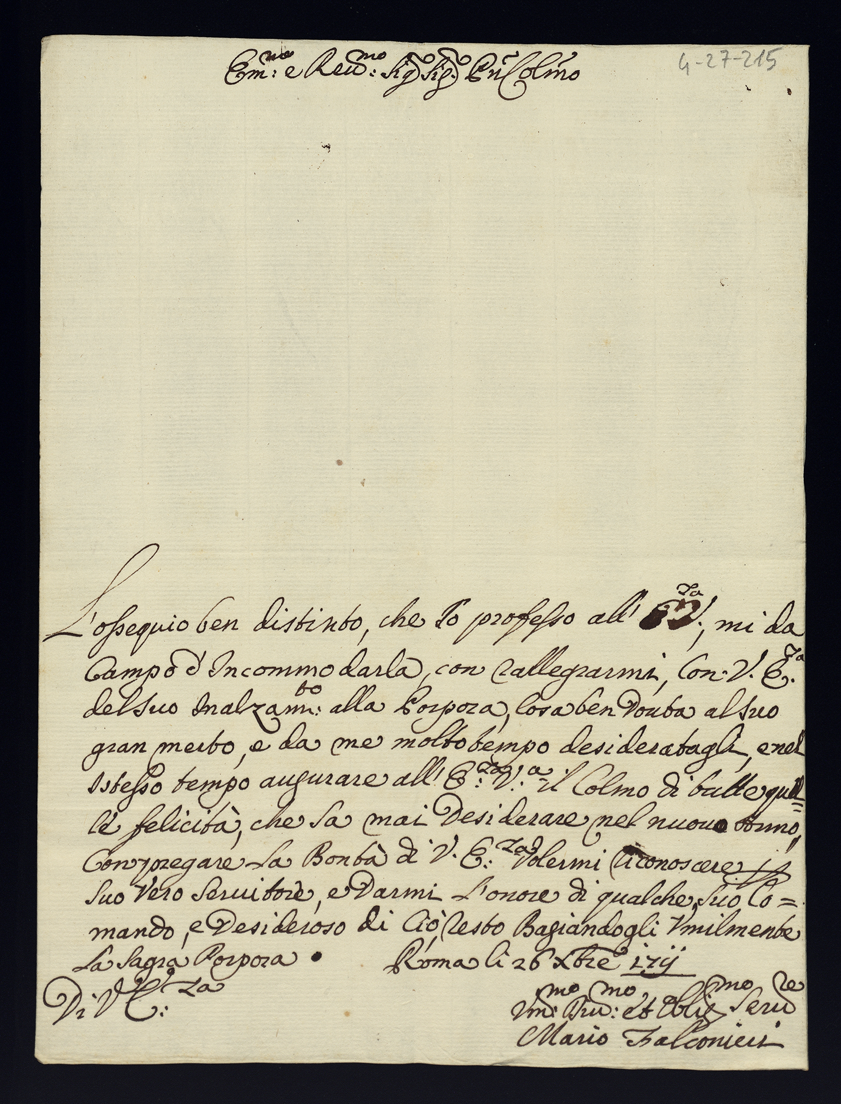 Em.mo e Reu.mo Sig.o Sig.o Pñ Colmo
4-27-215
L'ossequio ben distinto, che Io professo all' E.za V., mi da
Campo d'Incommodarla, con rallegrarmi, Con V. E.za
del suo Inalzam.to alla Porpora, Cosa ben Douta al suo
gran merto, e da me molto tempo desideratagli, e nel
Istesso tempo augurare all' E.za V.a il Colmo di tutte quel=
le felicità, che sa mai Desiderare nel nuouo Anno,
Con pregare La Bontà di V. E.za Volermi riconoscere p
Suo Vero Seruitore, e Darmi L'onore di qualche suo Co=
mando, e Desideroso di Ciò resto Bagiandogli Vmilmente
La Sagra Porpora. Roma li 26 Xbre
Di V. E.za
Vm.mo et Oblig.mo Seru.re
Mario Falconieri